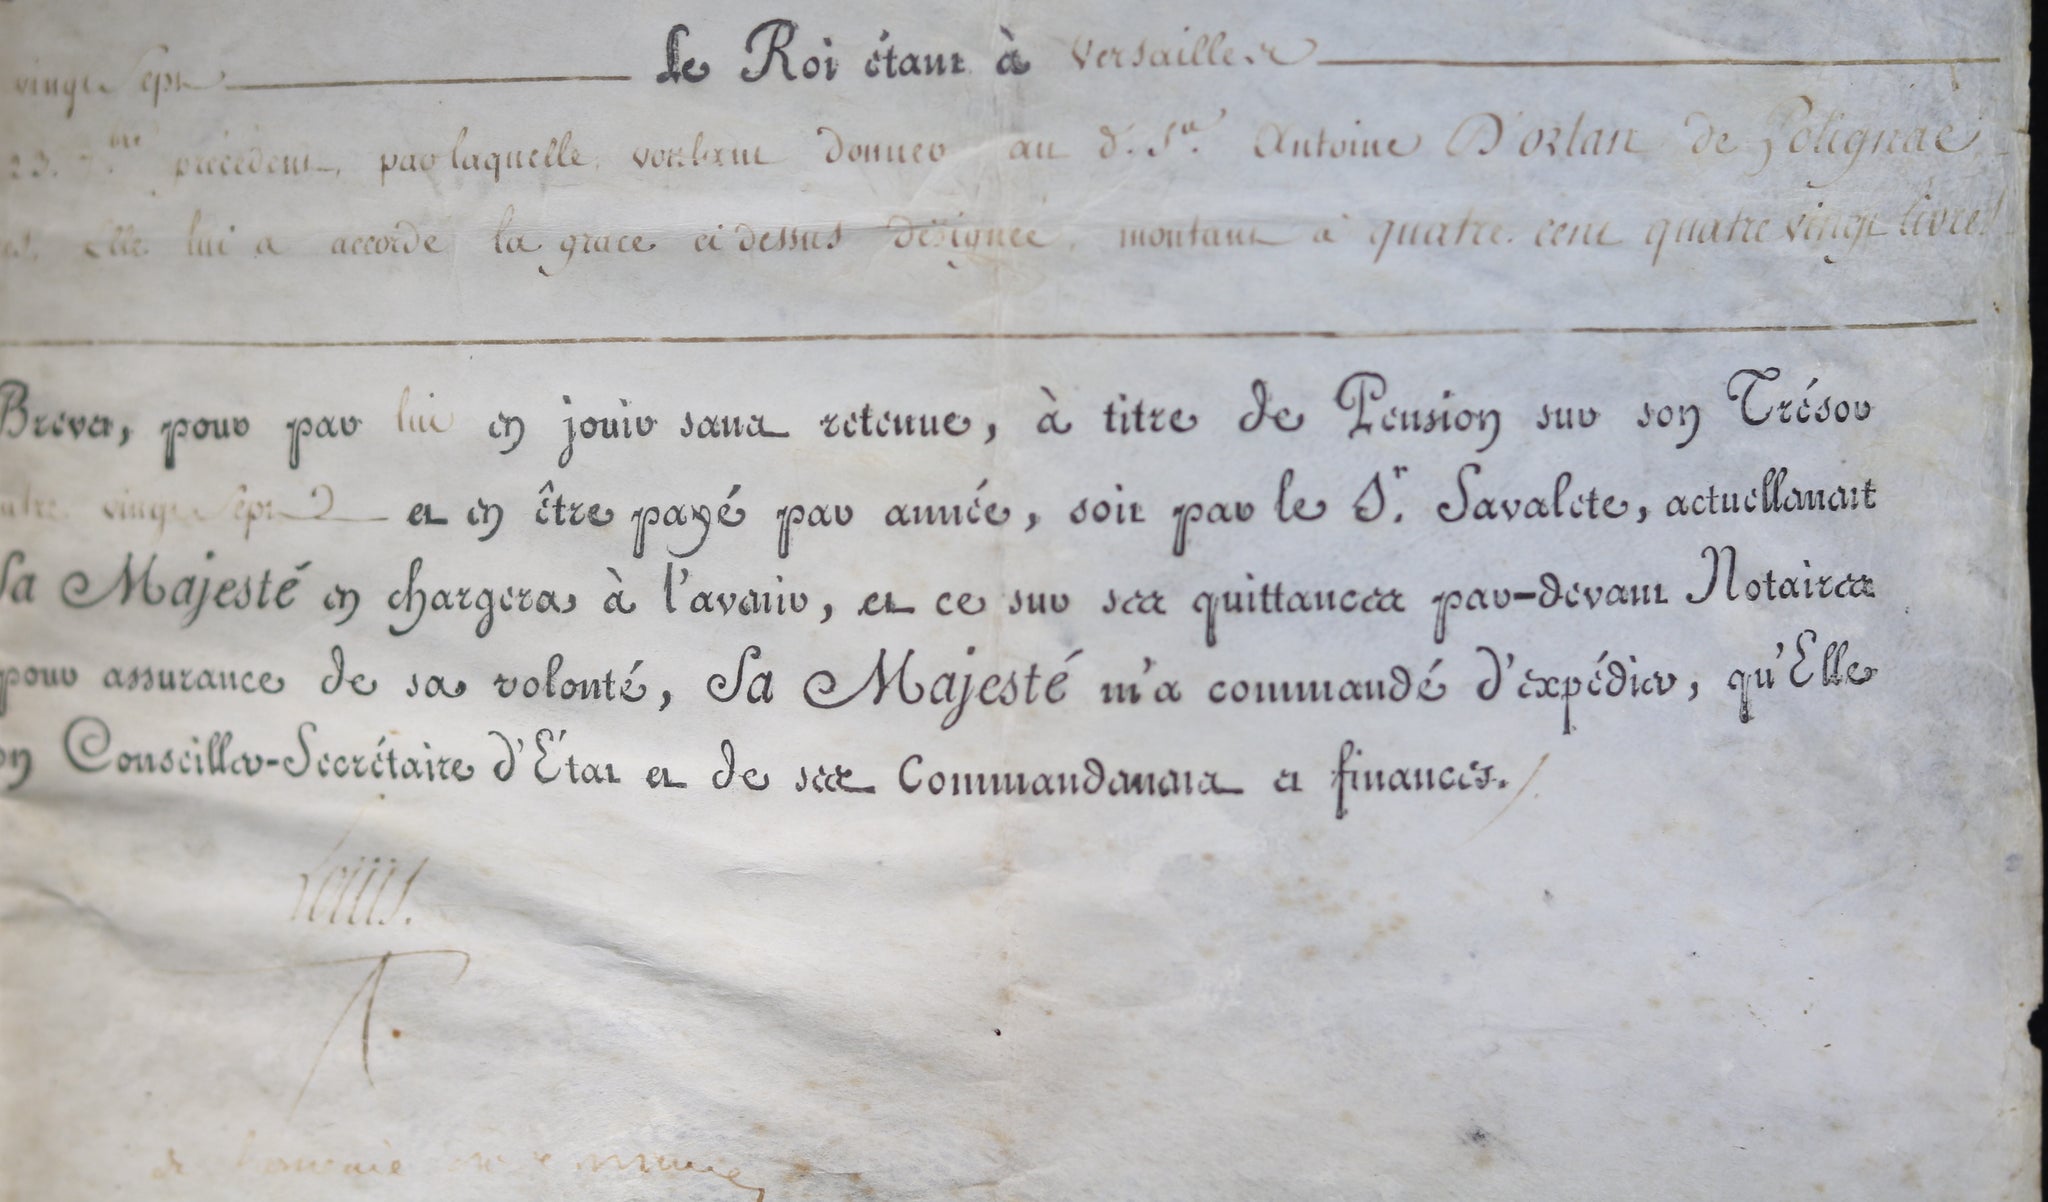 vingt Sept Le Roi étant à Versailles
23. 7.bre précédent, par laquelle voulant donner au d. Sr. Antoine D'orlan de Polignac
Elle lui a accordé la grace ci dessus désignée, montant à quatre cent quatre vingt livres
Brevet, pour par lui en jouir sans retenue, à titre de Pension sur son Trésor
vingt Sept et en être payé par année, soit par le Sr. Savalete, actuellement
Sa Majesté en chargera à l'avenir, et ce sur ses quittances par-devant Notaires
pour assurance de sa volonté, Sa Majesté m'a commandé d'expédier, qu'Elle
Conseiller-Secrétaire d'État et de ses Commandemens et finances.
Louis.
de